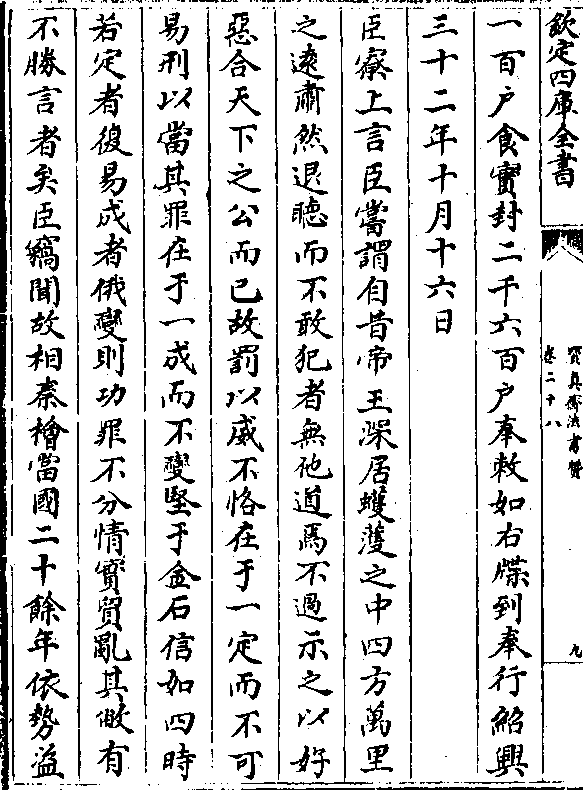 欽定四庫全書
寶真齋法書贊
卷二十八
九
一百戶食實封二千六百戶奉敕如右牒到奉行紹興
三十二年十月十六日
臣寮上言臣嘗謂自昔帝王深居蠖濩之中四方萬里
之遠肅然退聽而不敢犯者無他道焉不過示之以好
惡合天下之公而已故罰以威不恪在于一定而不可
易刑以當其罪在于一成而不變堅于金石信如四時
若定者復易成者俄變則功罪不分情實貿亂其敝有
不勝言者矣臣竊聞故相秦檜當國二十餘年依勢盜